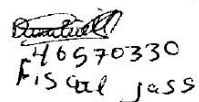 40570330
Fiscal jass